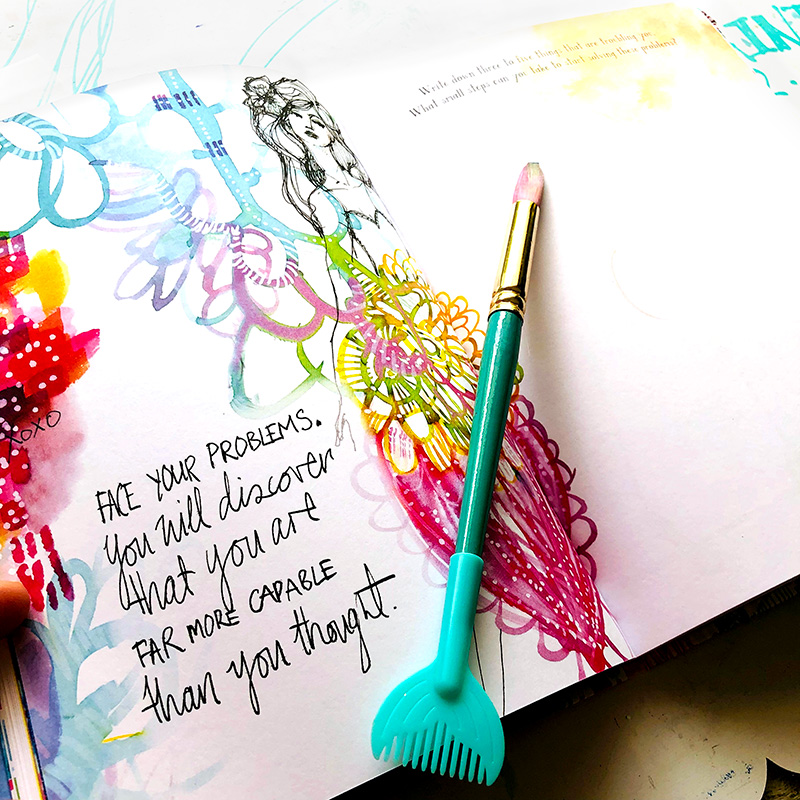 Write down three to five things that are troubling you.
What small steps can you take to start solving these problems?
XOXO
FACE YOUR PROBLEMS.
you will discover
that you are
FAR MORE CAPABLE
than you thought.